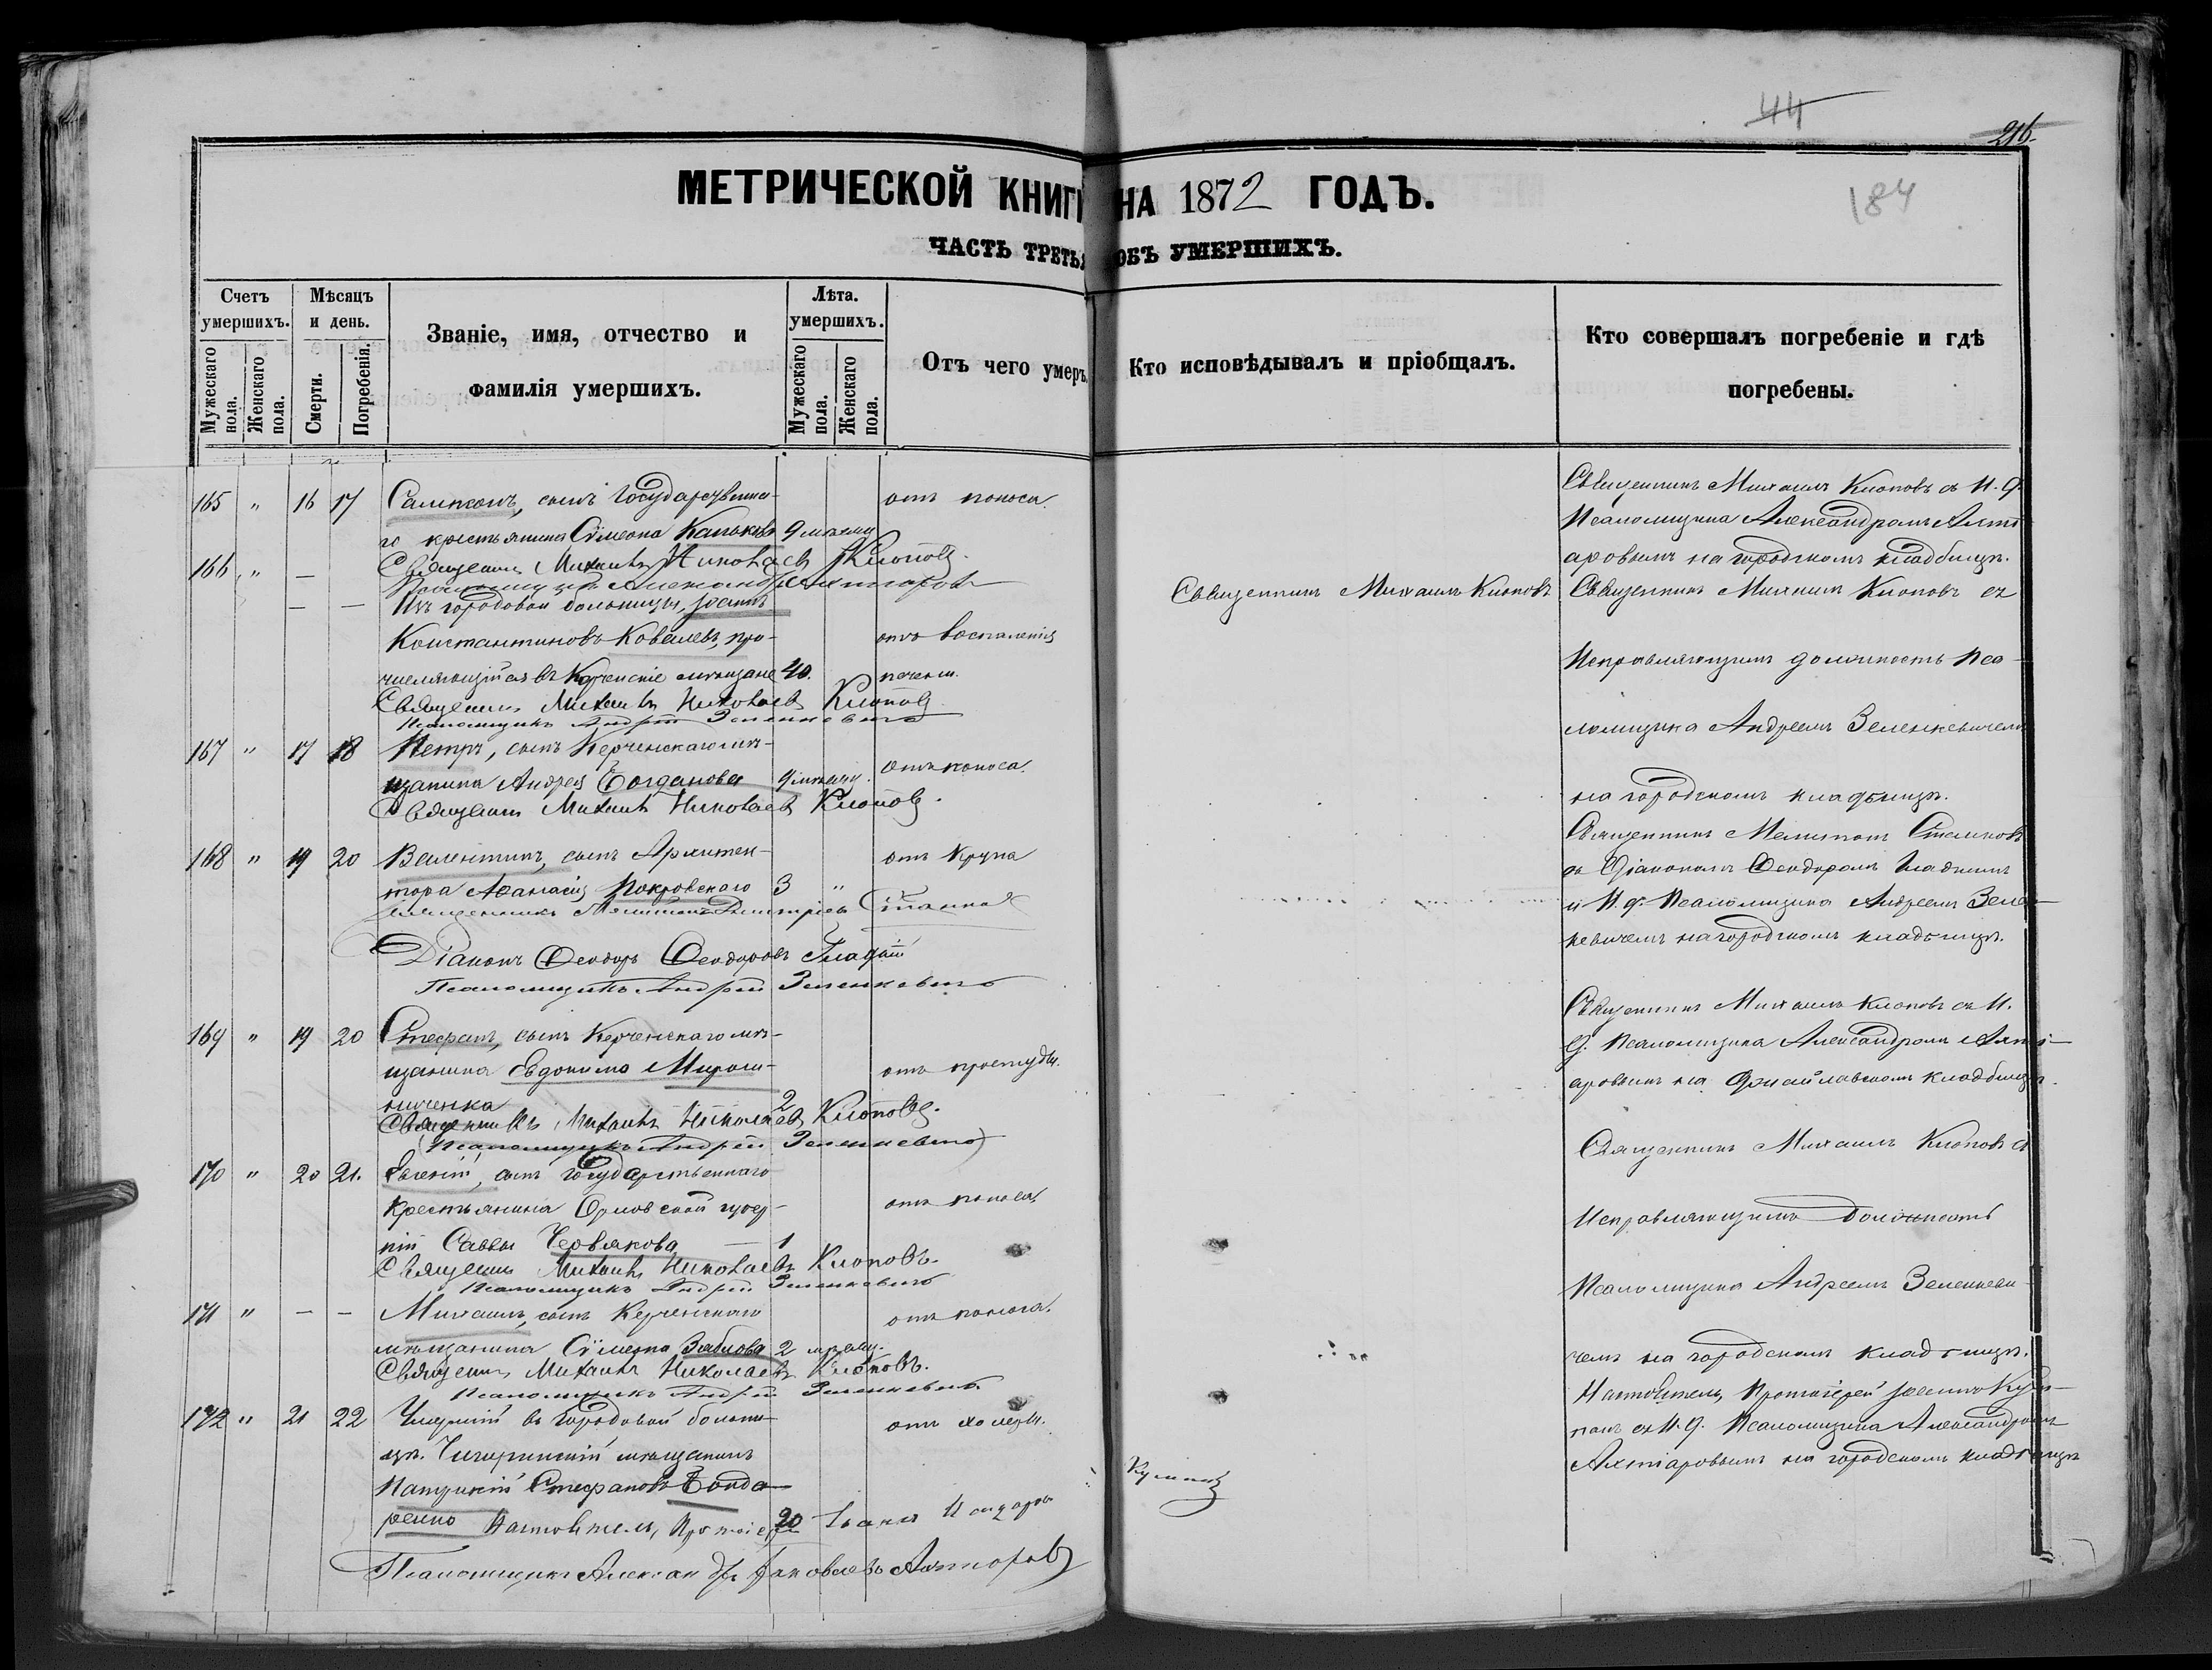 44
216.
184
МЕТРИЧЕСКОЙ КНИГИ НА 1872 ГОДЪ.
ЧАСТЬ ТРЕТЬЯ ОБЪ УМЕРШИХЪ.
Счетъ умершихъ.
Мужескаго пола.
Женскаго пола.
Мѣсяцъ и день.
Смерти.
Погребенія.
Званіе, имя, отчество и
фамилія умершихъ.
Лѣта. умершихъ.
Мужескаго пола.
Женскаго пола.
Отъ чего умеръ.
Кто исповѣдывалъ и пріобщалъ.
Кто совершалъ погребеніе и гдѣ
погребены.
165 " 16 17 сынъ Государственна- отъ поноса.
го крестьянина Сѵмеона 9 мѣсяц
Священникъ Михаилъ Николаевъ Клоповъ.
Псаломщикъ Александръ Ахтаровъ
Священникъ Михаилъ Клоповъ съ И. д.
Псаломщика Александромъ Ахті-
аровымъ на городскомъ кладбищѣ.
166 " — —
Въ городовой больницѣ, Іоаннъ
Константиновъ Ковалевъ, при- отъ воспаленія
числяющійся въ Керченскіе мѣщане 40. печени.
Священникъ Михаилъ Николаевъ Клоповъ
Псаломщикъ Андрей Зеленкевичъ
Священникъ Михаилъ Клоповъ
Священникъ Михаилъ Клоповъ съ
Исправляющимъ должность Пса-
ломщика Андреемъ Зеленкевичемъ
на городскомъ кладбищѣ.
167 " 17 18 Петръ, сынъ Керченскаго мѣ-
щанина Андрея Богданова 9 мѣсяц. отъ поноса.
Священникъ Михаилъ Николаевъ Клоповъ.
168 " 19 20 Валентинъ, сынъ Архитек- отъ Крупа
тора Аѳанасія Покровскаго 3 "
Священникъ Мелитонъ Димитріевъ
Діаконъ Ѳеодоръ Ѳеодоровъ Гладкій
Псаломщикъ Андрей Зеленкевичъ
Священникъ Мелитонъ
съ Діакономъ Ѳеодоромъ Гладкимъ
и И. д. Псаломщика Андреемъ Зелен-
кевичемъ на городскомъ кладбищѣ.
169 " 19 20 Стефанъ, сынъ Керченскаго мѣ-
щанина Евдокима Мирош- отъ простуды.
ниченка 2
Священникъ Михаилъ Николаевъ Клоповъ.
Псаломщикъ Андрей Зеленкевичъ
Священникъ Михаилъ Клоповъ съ И.
д. Псаломщика Александромъ Ахті-
аровымъ на кладбищѣ.
170 " 20 21. Евгеній, сынъ Государственнаго
Крестьянина Орловской губер- отъ поноса,
ніи Саввы Червякова — 1
Священникъ Михаилъ Николаевъ Клоповъ.
Псаломщикъ Андрей Зеленкевичъ
Священникъ Михаилъ Клоповъ съ
Исправляющимъ Должность
Псаломщика Андреемъ Зеленкеви-
чемъ на городскомъ кладбищѣ.
171 " — — Михаилъ, сынъ Керченскаго отъ поноса.
мѣщанина Сѵмеона 2 мѣсяц.
Священникъ Михаилъ Николаевъ Клоповъ.
Псаломщикъ Андрей Зеленкевичъ
172 " 21 22 Умершій въ Городовой больни- отъ холеры.
цѣ. Чигиринскій мѣщанинъ
Стефановъ Бонда-
ренко 20
Настоятель, Протоіерей Іоаннъ
Псаломщикъ Александръ Яковлевъ Ахтіаровъ
Настоятель, Протоіерей Іоаннъ
съ И. д. Псаломщика Александромъ
Ахтіаровымъ на городскомъ кладбищѣ